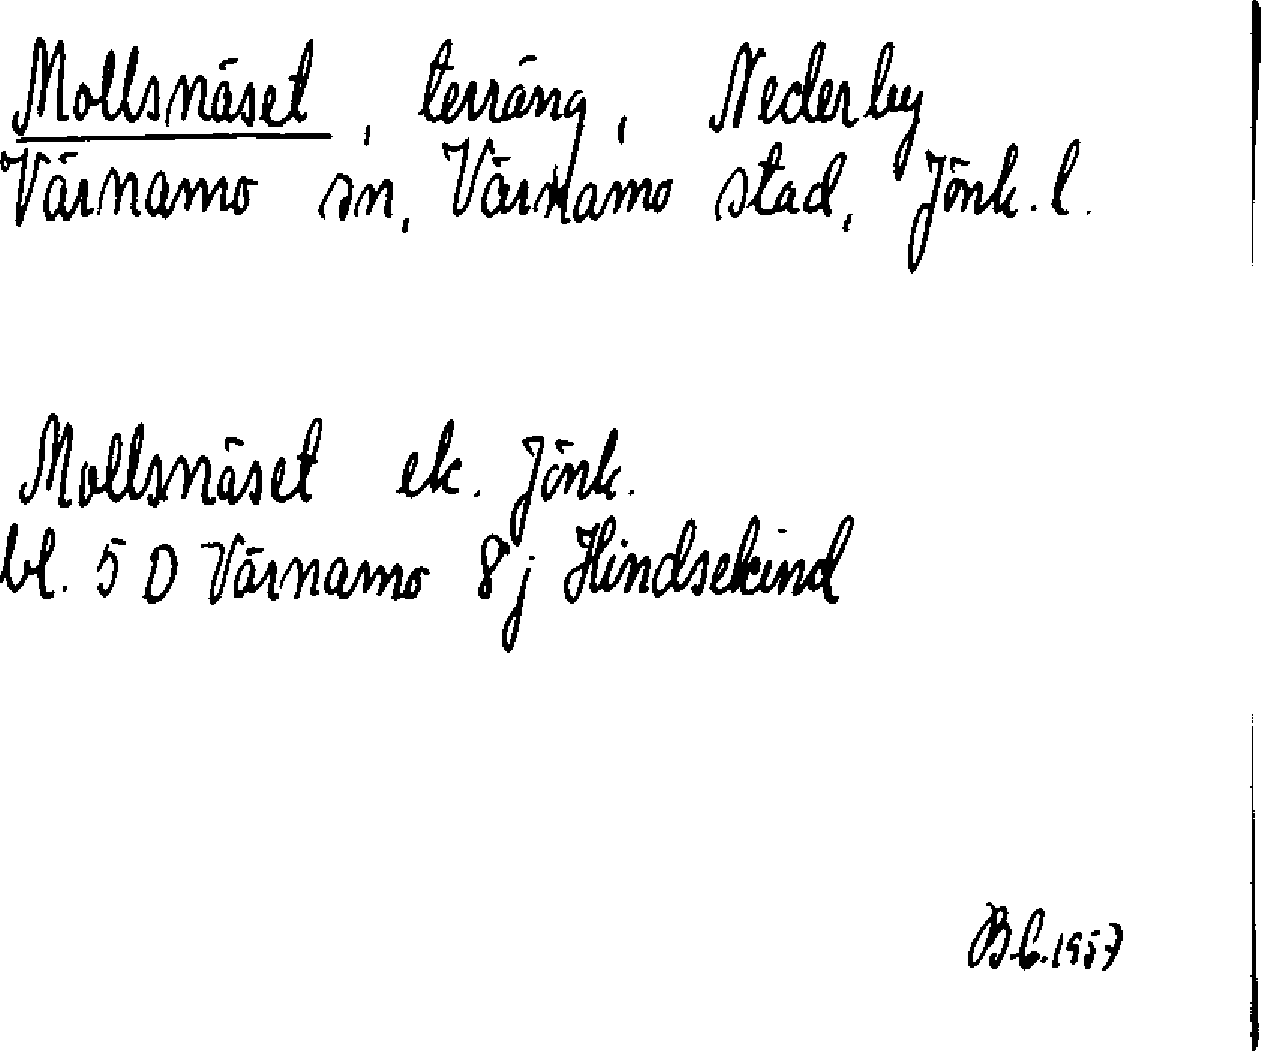 Mollsnäset, terräng, Nederby
Värnamo sn, Värnamo stad, Jönk. l.
Mollsnäset ek. Jönk.
bl. 5 D Värnamo 8j Hindsekind
B.C. 1957